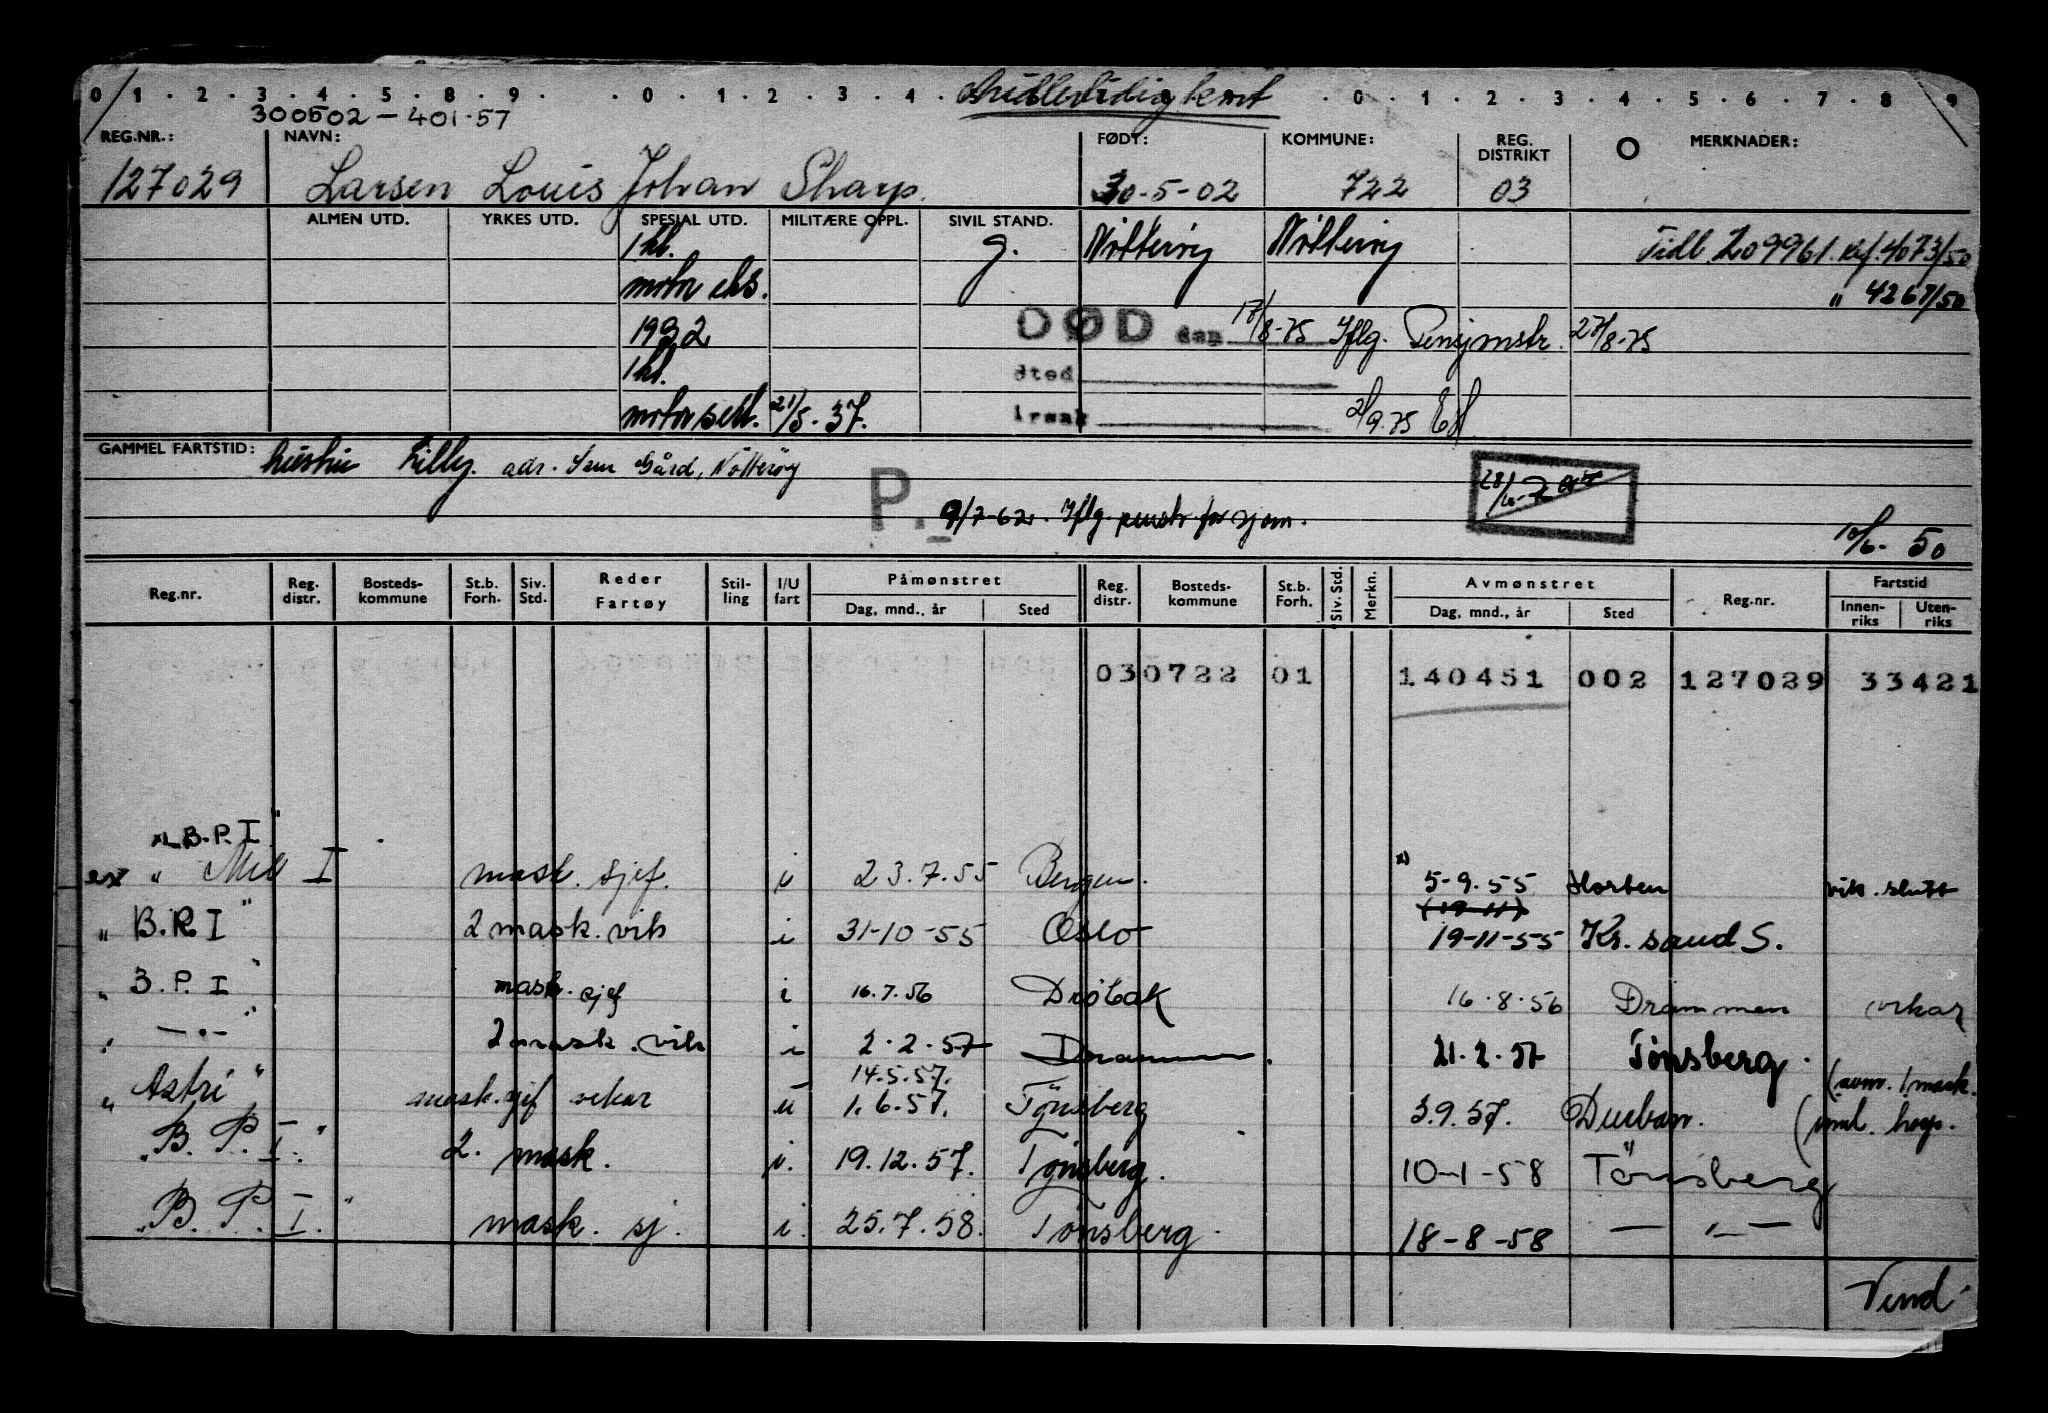 0 1 . 2 . 3 . 4 . 5 . 8 . 9 . . 0 . 1 . 2 . 3 . 4 . Midlertidig kort . 0 . 1 . 2 . 3 . 4 . 5 . 6 . 7 . 8 . 9
300502-401-57
REG.NR.: NAVN: FØDT: KOMMUNE: REG. DISTRIKT MERKNADER:
127029 Larsen Louis Johan Sharp. 30-5-02 722 03
ALMEN UTD. YRKES UTD. SPESIAL UTD. MILITÆRE OPPL. SIVIL STAND.
1 kl. g. Nøtterøy Nøtterøy Tidl 209961. ref. 4073/50
motor eks. " 4267/50
1932 DØD den 17/8-75 Iflg. Pensjonstr. 27/8-75
1 kl. sted
motor sert. 21/5-37. årsak 2/9.75
GAMMEL FARTSTID: hustru Lilly. adr. Sem Gård, Nøtterøy
P. 9/7-62. Iflg. penstr. for sjøm.
10/6-50
Reg.nr. Reg. distr. Bosteds-kommune St.b. Forh. Siv. Std. Reder Fartøy Stil-ling I/U fart Påmønstret Reg. distr. Bosteds-kommune St.b. Forh. Siv. Std. Merkn. Avmønstret Reg.nr. Fartstid
Dag, mnd., år Sted Dag, mnd., år Sted Innen-riks Uten-riks
030722 01 140451 002 127029 33421
x) B.P. I"
ex " Mil I mask. sjef. i 23.7.55 Bergen. x) 5-9.55 Horten vik. slutt
(19-11)
" B.P. I" 2 mask. vik i 31-10-55 Oslo 19-11-55 Kr. sand S.
" B.P. I" mask. sjef i 16.7.56 Drøbak 16.8.56 Drammen vikar
" —"— " 2 mask. vik i 2.2.57 Drammen. 21.2.57 Tønsberg.
14.5.57. (avm. 1 mask.
" Astri" mask. sjef vikar u 1.6.57. Tønsberg 3.9.57. Durban. (innl. hosp.
"B. P. I." 2. mask. i. 19.12.57. Tønsberg. 10-1-58 Tönsberg
"B. P. I." mask. sj. i. 25.7.58. Tønsberg. 18-8-58 —"—
Vend